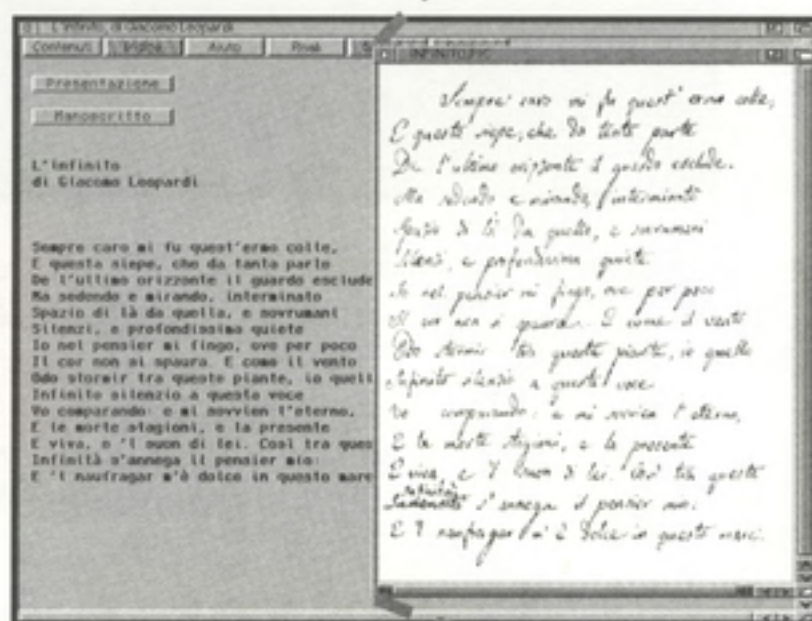 L'Infinito, di Giacomo Leopardi
Contenuti Indice Aiuto
Presentazione
Manoscritto
L'Infinito
di Giacomo Leopardi
Sempre caro mi fu quest'ermo colle,
E questa siepe, che da tanta parte
De l'ultimo orizzonte il guardo esclude
Ma sedendo e mirando, interminato
Spazio di là da quella, e sovrumani
Silenzi, e profondissima quiete
Io nel pensier mi fingo, ove per poco
Il cor non si spaura. E come il vento
Odo stormir tra queste piante, io quell
Infinito silenzio a questa voce
Vo comparando: e mi sovvien l'eterno,
E le morte stagioni, e la presente
E viva, e 'l suon di lei. Così tra ques
Infinità s'annega il pensier mio:
E 'l naufragar m'è dolce in questo mare
INFINITO.PIC
Sempre caro mi fu quest'ermo colle,
E questa siepe, che da tanta parte
De l'ultimo orizzonte il guardo esclude.
Ma sedendo e mirando, interminato
Spazio di là da quella, e sovrumani
Silenzi, e profondissima quiete
Io nel pensier mi fingo, ove per poco
Il cor non si spaura. E come il vento
Odo stormir tra queste piante, io quello
Infinito silenzio a questa voce
Vo comparando: e mi sovvien l'eterno,
E le morte stagioni, e la presente
E viva, e 'l suon di lei. Così tra queste
Infinità
s'annega il pensier mio:
E 'l naufragar m'è dolce in questo mare.